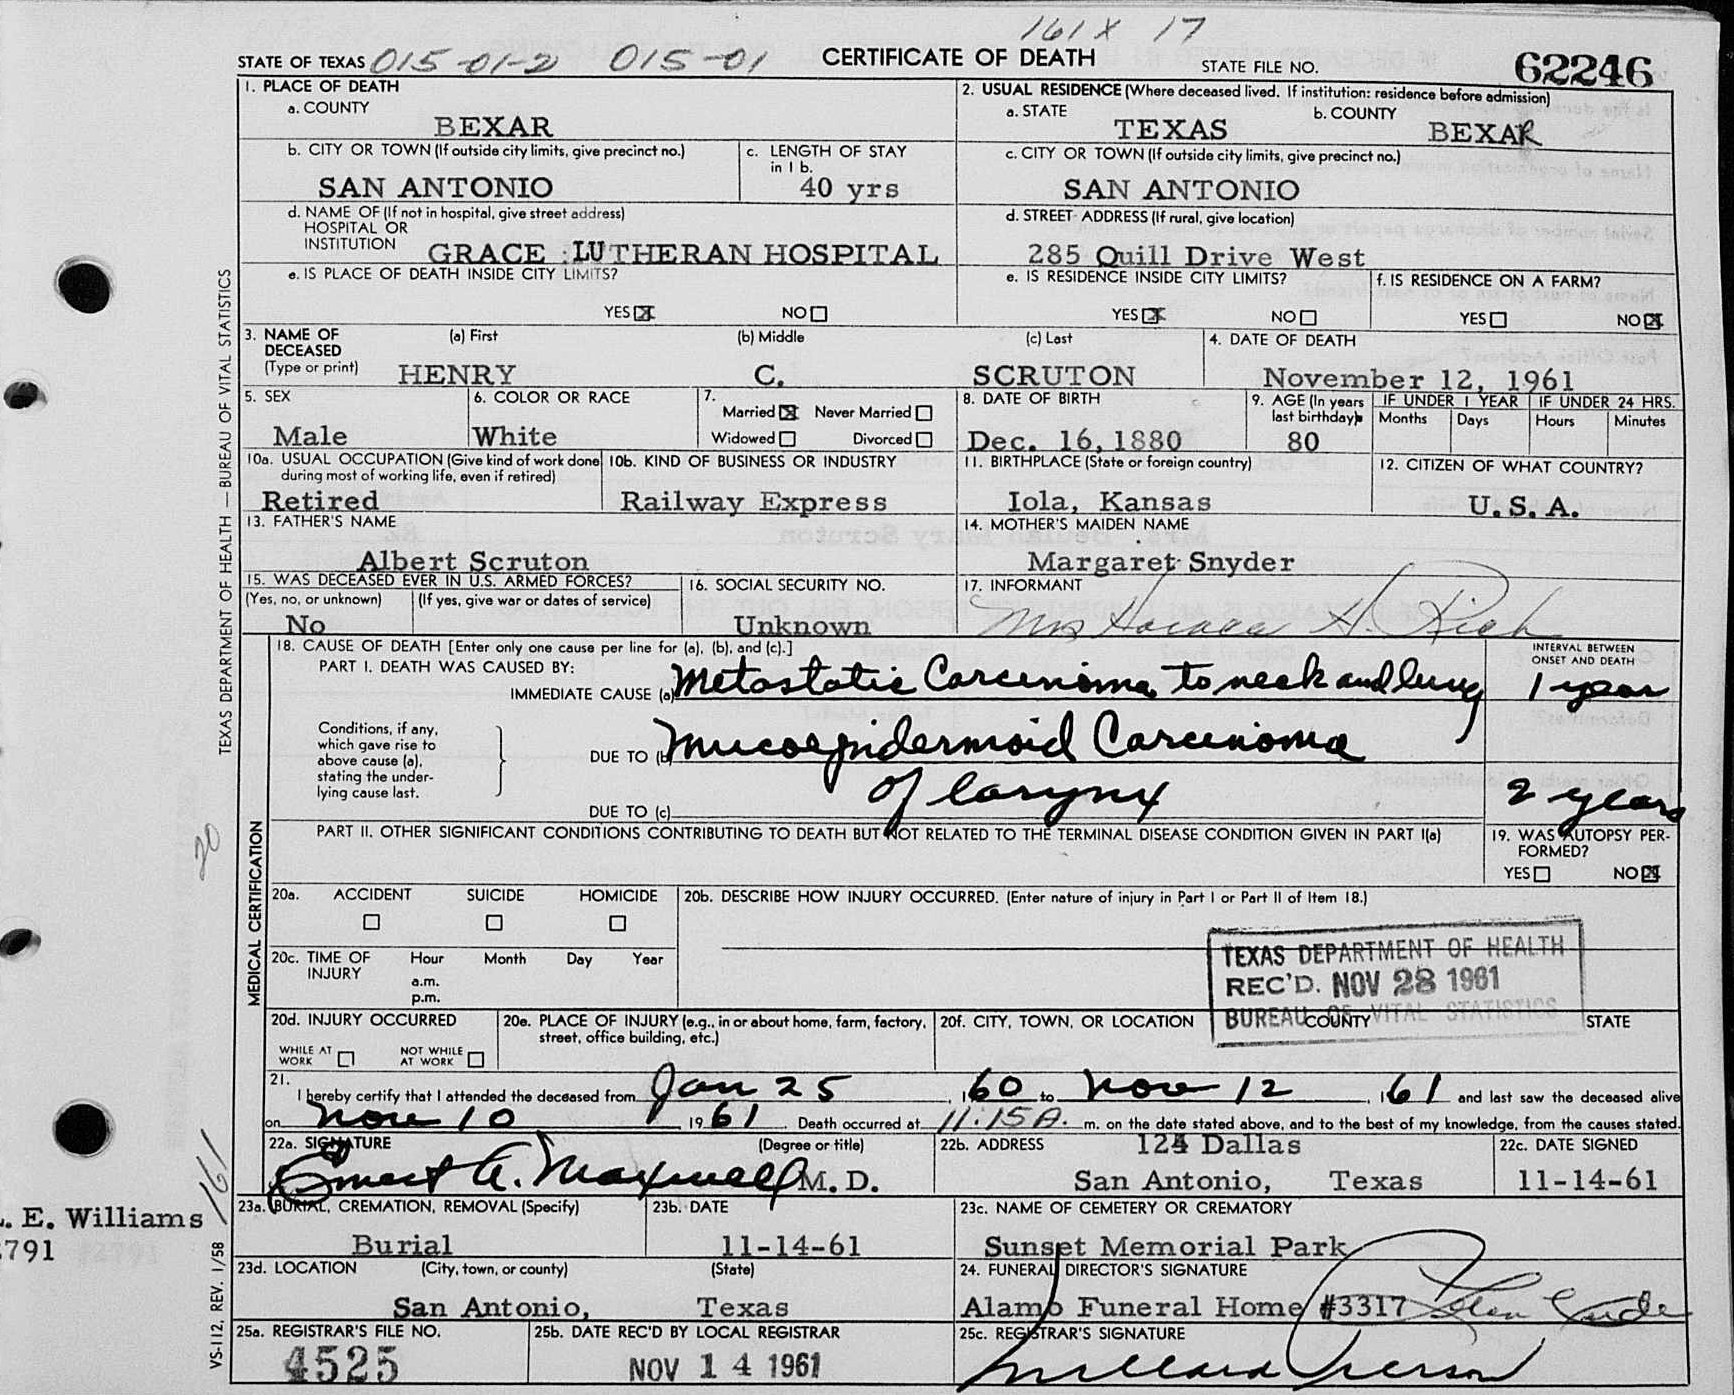 161X 17
STATE OF TEXAS 015-01-2 015-01 CERTIFICATE OF DEATH STATE FILE NO. 62246
1. PLACE OF DEATH
a. COUNTY
BEXAR
2. USUAL RESIDENCE (Where deceased lived. If institution: residence before admission)
a. STATE b. COUNTY
TEXAS BEXAR
b. CITY OR TOWN (If outside city limits, give precinct no.)
SAN ANTONIO
c. LENGTH OF STAY
in 1 b.
40 yrs
c. CITY OR TOWN (If outside city limits, give precinct no.)
SAN ANTONIO
d. NAME OF (If not in hospital, give street address)
HOSPITAL OR
INSTITUTION GRACE LUTHERAN HOSPITAL
d. STREET ADDRESS (If rural, give location)
285 Quill Drive West
e. IS PLACE OF DEATH INSIDE CITY LIMITS?
YES X NO
e. IS RESIDENCE INSIDE CITY LIMITS?
YES X NO
f. IS RESIDENCE ON A FARM?
YES NO X
3. NAME OF
DECEASED
(Type or print)
(a) First (b) Middle (c) Last
HENRY C. SCRUTON
4. DATE OF DEATH
November 12, 1961
5. SEX
Male
6. COLOR OR RACE
White
7.
Married X Never Married
Widowed Divorced
8. DATE OF BIRTH
Dec. 16, 1880
9. AGE (In years
last birthday)
80
IF UNDER 1 YEAR IF UNDER 24 HRS.
Months Days Hours Minutes
10a. USUAL OCCUPATION (Give kind of work done
during most of working life, even if retired)
Retired
10b. KIND OF BUSINESS OR INDUSTRY
Railway Express
11. BIRTHPLACE (State or foreign country)
Iola, Kansas
12. CITIZEN OF WHAT COUNTRY?
U.S.A.
13. FATHER'S NAME
Albert Scruton
14. MOTHER'S MAIDEN NAME
Margaret Snyder
15. WAS DECEASED EVER IN U.S. ARMED FORCES?
(Yes, no, or unknown) (If yes, give war or dates of service)
No
16. SOCIAL SECURITY NO.
Unknown
17. INFORMANT
Mrs Horace H. Rich
18. CAUSE OF DEATH [Enter only one cause per line for (a), (b), and (c).]
PART I. DEATH WAS CAUSED BY:
IMMEDIATE CAUSE (a) Metastatic Carcinoma to neck and lung
INTERVAL BETWEEN
ONSET AND DEATH
1 year
Conditions, if any,
which gave rise to
above cause (a),
stating the under-
lying cause last.
DUE TO (b) Mucoepidermoid Carcinoma
of larynx
DUE TO (c)
2 years
PART II. OTHER SIGNIFICANT CONDITIONS CONTRIBUTING TO DEATH BUT NOT RELATED TO THE TERMINAL DISEASE CONDITION GIVEN IN PART I(a)
19. WAS AUTOPSY PER-
FORMED?
YES NO X
20a. ACCIDENT SUICIDE HOMICIDE
20b. DESCRIBE HOW INJURY OCCURRED. (Enter nature of injury in Part I or Part II of Item 18.)
20c. TIME OF
INJURY
Hour Month Day Year
a.m.
p.m.
TEXAS DEPARTMENT OF HEALTH
REC'D. NOV 28 1961
BUREAU OF VITAL STATISTICS
20d. INJURY OCCURRED
WHILE AT
WORK
NOT WHILE
AT WORK
20e. PLACE OF INJURY (e.g., in or about home, farm, factory,
street, office building, etc.)
20f. CITY, TOWN, OR LOCATION COUNTY STATE
21.
I hereby certify that I attended the deceased from Jan 25, 1960 to Nov 12, 1961 and last saw the deceased alive
on Nov 10, 1961. Death occurred at 11:15A. m. on the date stated above, and to the best of my knowledge, from the causes stated.
22a. SIGNATURE (Degree or title)
Ernest A. Maxwell M.D.
22b. ADDRESS 124 Dallas
San Antonio, Texas
22c. DATE SIGNED
11-14-61
23a. BURIAL, CREMATION, REMOVAL (Specify)
Burial
23b. DATE
11-14-61
23c. NAME OF CEMETERY OR CREMATORY
Sunset Memorial Park
23d. LOCATION (City, town, or county) (State)
San Antonio, Texas
24. FUNERAL DIRECTOR'S SIGNATURE
Alamo Funeral Home #3317
25a. REGISTRAR'S FILE NO.
4525
25b. DATE REC'D BY LOCAL REGISTRAR
NOV 14 1961
25c. REGISTRAR'S SIGNATURE
TEXAS DEPARTMENT OF HEALTH — BUREAU OF VITAL STATISTICS
MEDICAL CERTIFICATION
VS-112, REV. 1/58
20
161
. E. Williams
791